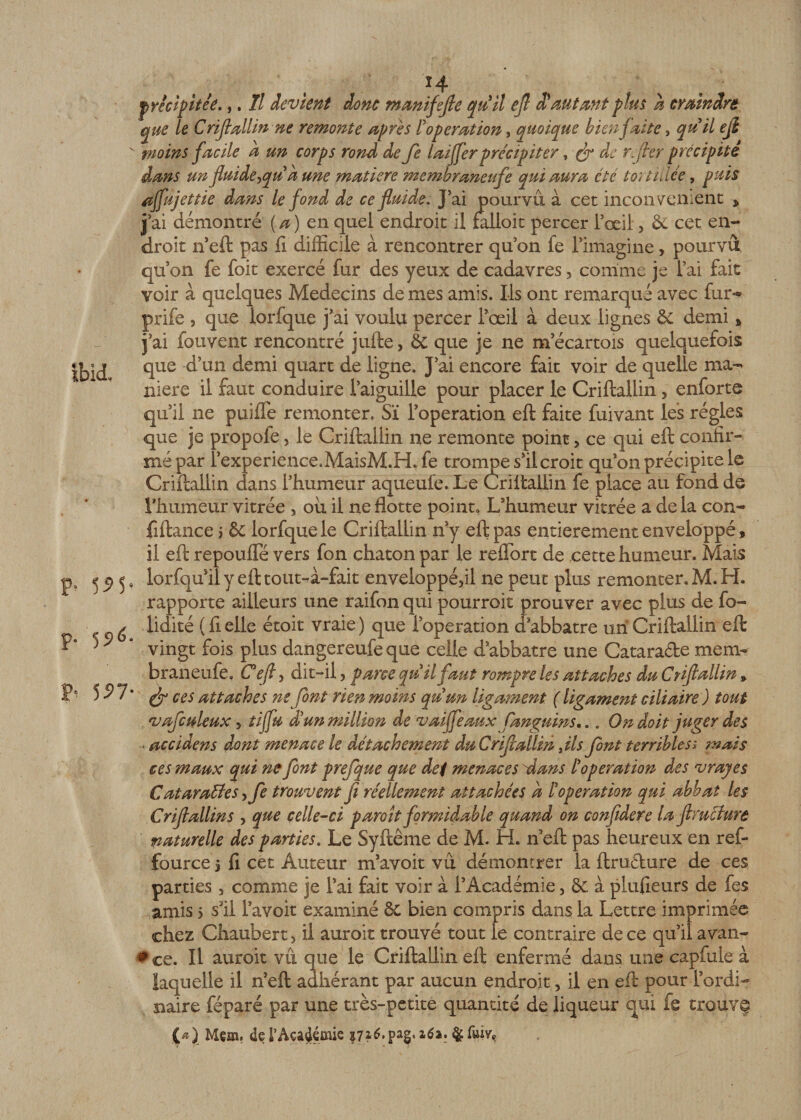 14
précipitée.,. Il devient donc manifeſte qu'il eſt d'autant plus à craindre
que le Criſtallin ne remonte après l'operation, quoique bien faite, qu'il eſt
moins facile à un corps rond de ſe laiſſer précipiter, & de reſter précipité
dans un fluide, qu'à une matiere membraneuſe qui aura été tortillée, puis
aſſujettie dans le fond de ce fluide. J'ai pourvû à cet inconvenient,
j'ai démontré (a) en quel endroit il falloit percer l'œil, & cet en-
droit n'eſt pas ſi difficile à rencontrer qu'on ſe l'imagine, pourvû
qu'on ſe ſoit exercé ſur des yeux de cadavres, comme je l'ai fait
voir à quelques Medecins de mes amis. Ils ont remarqué avec ſur-
priſe, que lorſque j'ai voulu percer l'œil à deux lignes & demi,
j'ai ſouvent rencontré juſte, & que je ne m'écartois quelquefois
ibid. que d'un demi quart de ligne. J'ai encore fait voir de quelle ma-
niere il faut conduire l'aiguille pour placer le Criſtallin, enſorte
qu'il ne puiſſe remonter. Si l'operation eſt faite ſuivant les régles
que je propoſe, le Criſtallin ne remonte point, ce qui eſt confir-
mé par l'experience. Mais M. H. ſe trompe s'il croit qu'on précipite le
Criſtallin dans l'humeur aqueuſe. Le Criſtallin ſe place au fond de
l'humeur vitrée, où il ne flotte point. L'humeur vitrée a de la con-
ſiſtance; & lorſque le Criſtallin n'y eſt pas entierement enveloppé,
il eſt repouſſé vers ſon chaton par le reſſort de cette humeur. Mais
p. 595. lorſqu'il y eſt tout-à-fait enveloppé, il ne peut plus remonter. M. H.
rapporte ailleurs une raiſon qui pourroit prouver avec plus de ſo-
p. 596. lidité (ſi elle étoit vraie) que l'operation d'abbatre un Criſtallin eſt
vingt fois plus dangereuſe que celle d'abbatre une Cataracte mem-
braneuſe. C'eſt, dit-il, parce qu'il faut rompre les attaches du Criſtallin,
p. 597. & ces attaches ne ſont rien moins qu'un ligament (ligament ciliaire) tout
vaſculeux, tiſſu d'un million de vaiſſeaux ſanguins... On doit juger des
accidens dont menace le détachement du Criſtallin, ils ſont terribles; mais
ces maux qui ne ſont preſque que des menaces dans l'operation des vrayes
Cataractes, ſe trouvent ſi réellement attachées à l'operation qui abbat les
Criſtallins, que celle-ci paroît formidable quand on conſidere la ſtructure
naturelle des parties. Le Syſtême de M. H. n'eſt pas heureux en reſ-
ſource; ſi cet Auteur m'avoit vû démontrer la ſtructure de ces
parties, comme je l'ai fait voir à l'Académie, & à pluſieurs de ſes
amis; s'il l'avoit examiné & bien compris dans la Lettre imprimée
chez Chaubert, il auroit trouvé tout le contraire de ce qu'il avan-
ce. Il auroit vû que le Criſtallin eſt enfermé dans une capſule à
laquelle il n'eſt adhérant par aucun endroit, il en eſt pour l'ordi-
naire ſéparé par une très-petite quantité de liqueur qui ſe trouve
(a) Mem. de l'Académie 1726. pag. 262. & ſuiv.